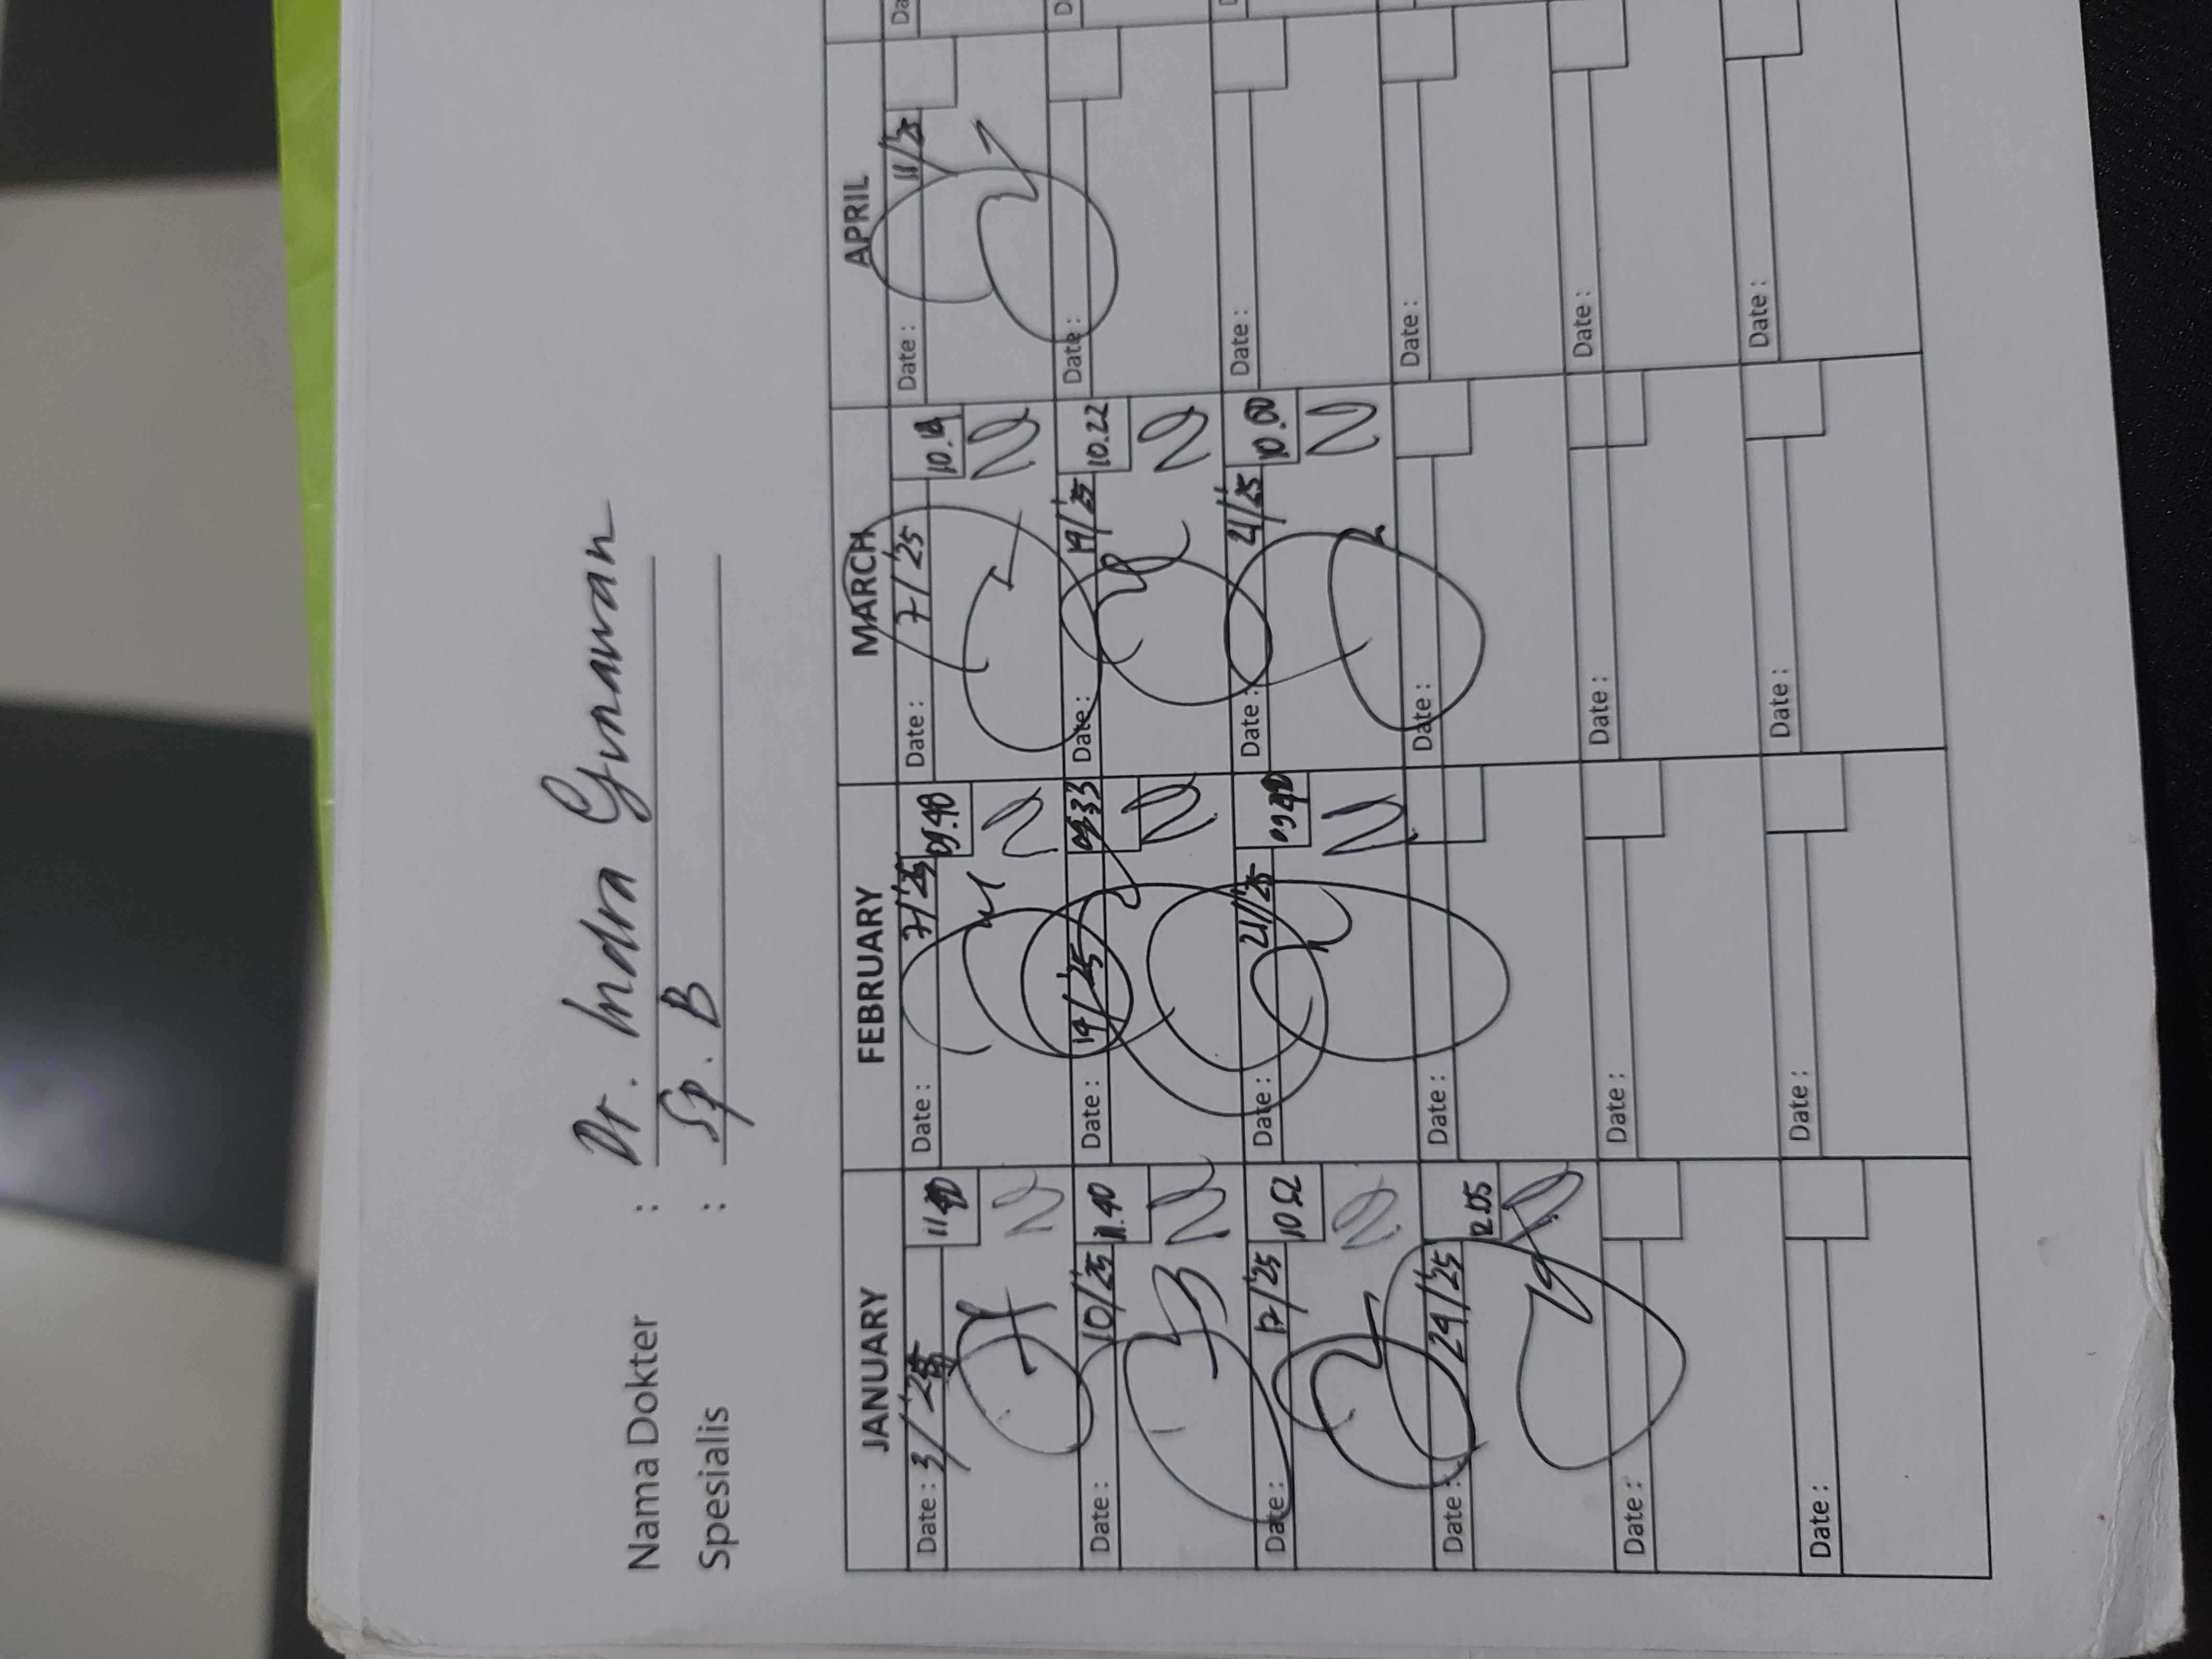 Nama Dokter : Dr. Indra Gunawan
Spesialis : Sp. B
JANUARY FEBRUARY MARCH APRIL
Date : 3/'25 11 40 Date : 7/'25 09.48 Date : 7/'25 10. Date : 11/'25 Da
Date : 10/'25 11.40 Date : 14/'25 09.33 Date : 19/'25 10.22 Date : D
Date : 17/'25 10 52 Date : 21/'25 09 40 Date : 21/'25 10.00 Date :
Date : 24/'25 12.05 Date : Date : Date :
Date : Date : Date : Date :
Date : Date : Date : Date :